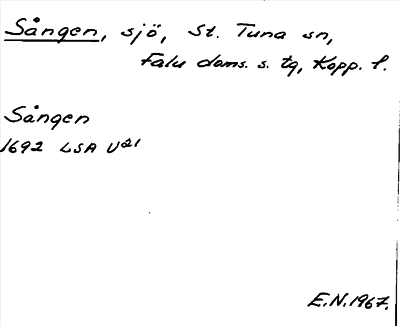 Sången, sjö, St. Tuna sn,
Falu doms. s. tg, Kopp. l.
Sången
1692 LSA U21
E.N. 1967.